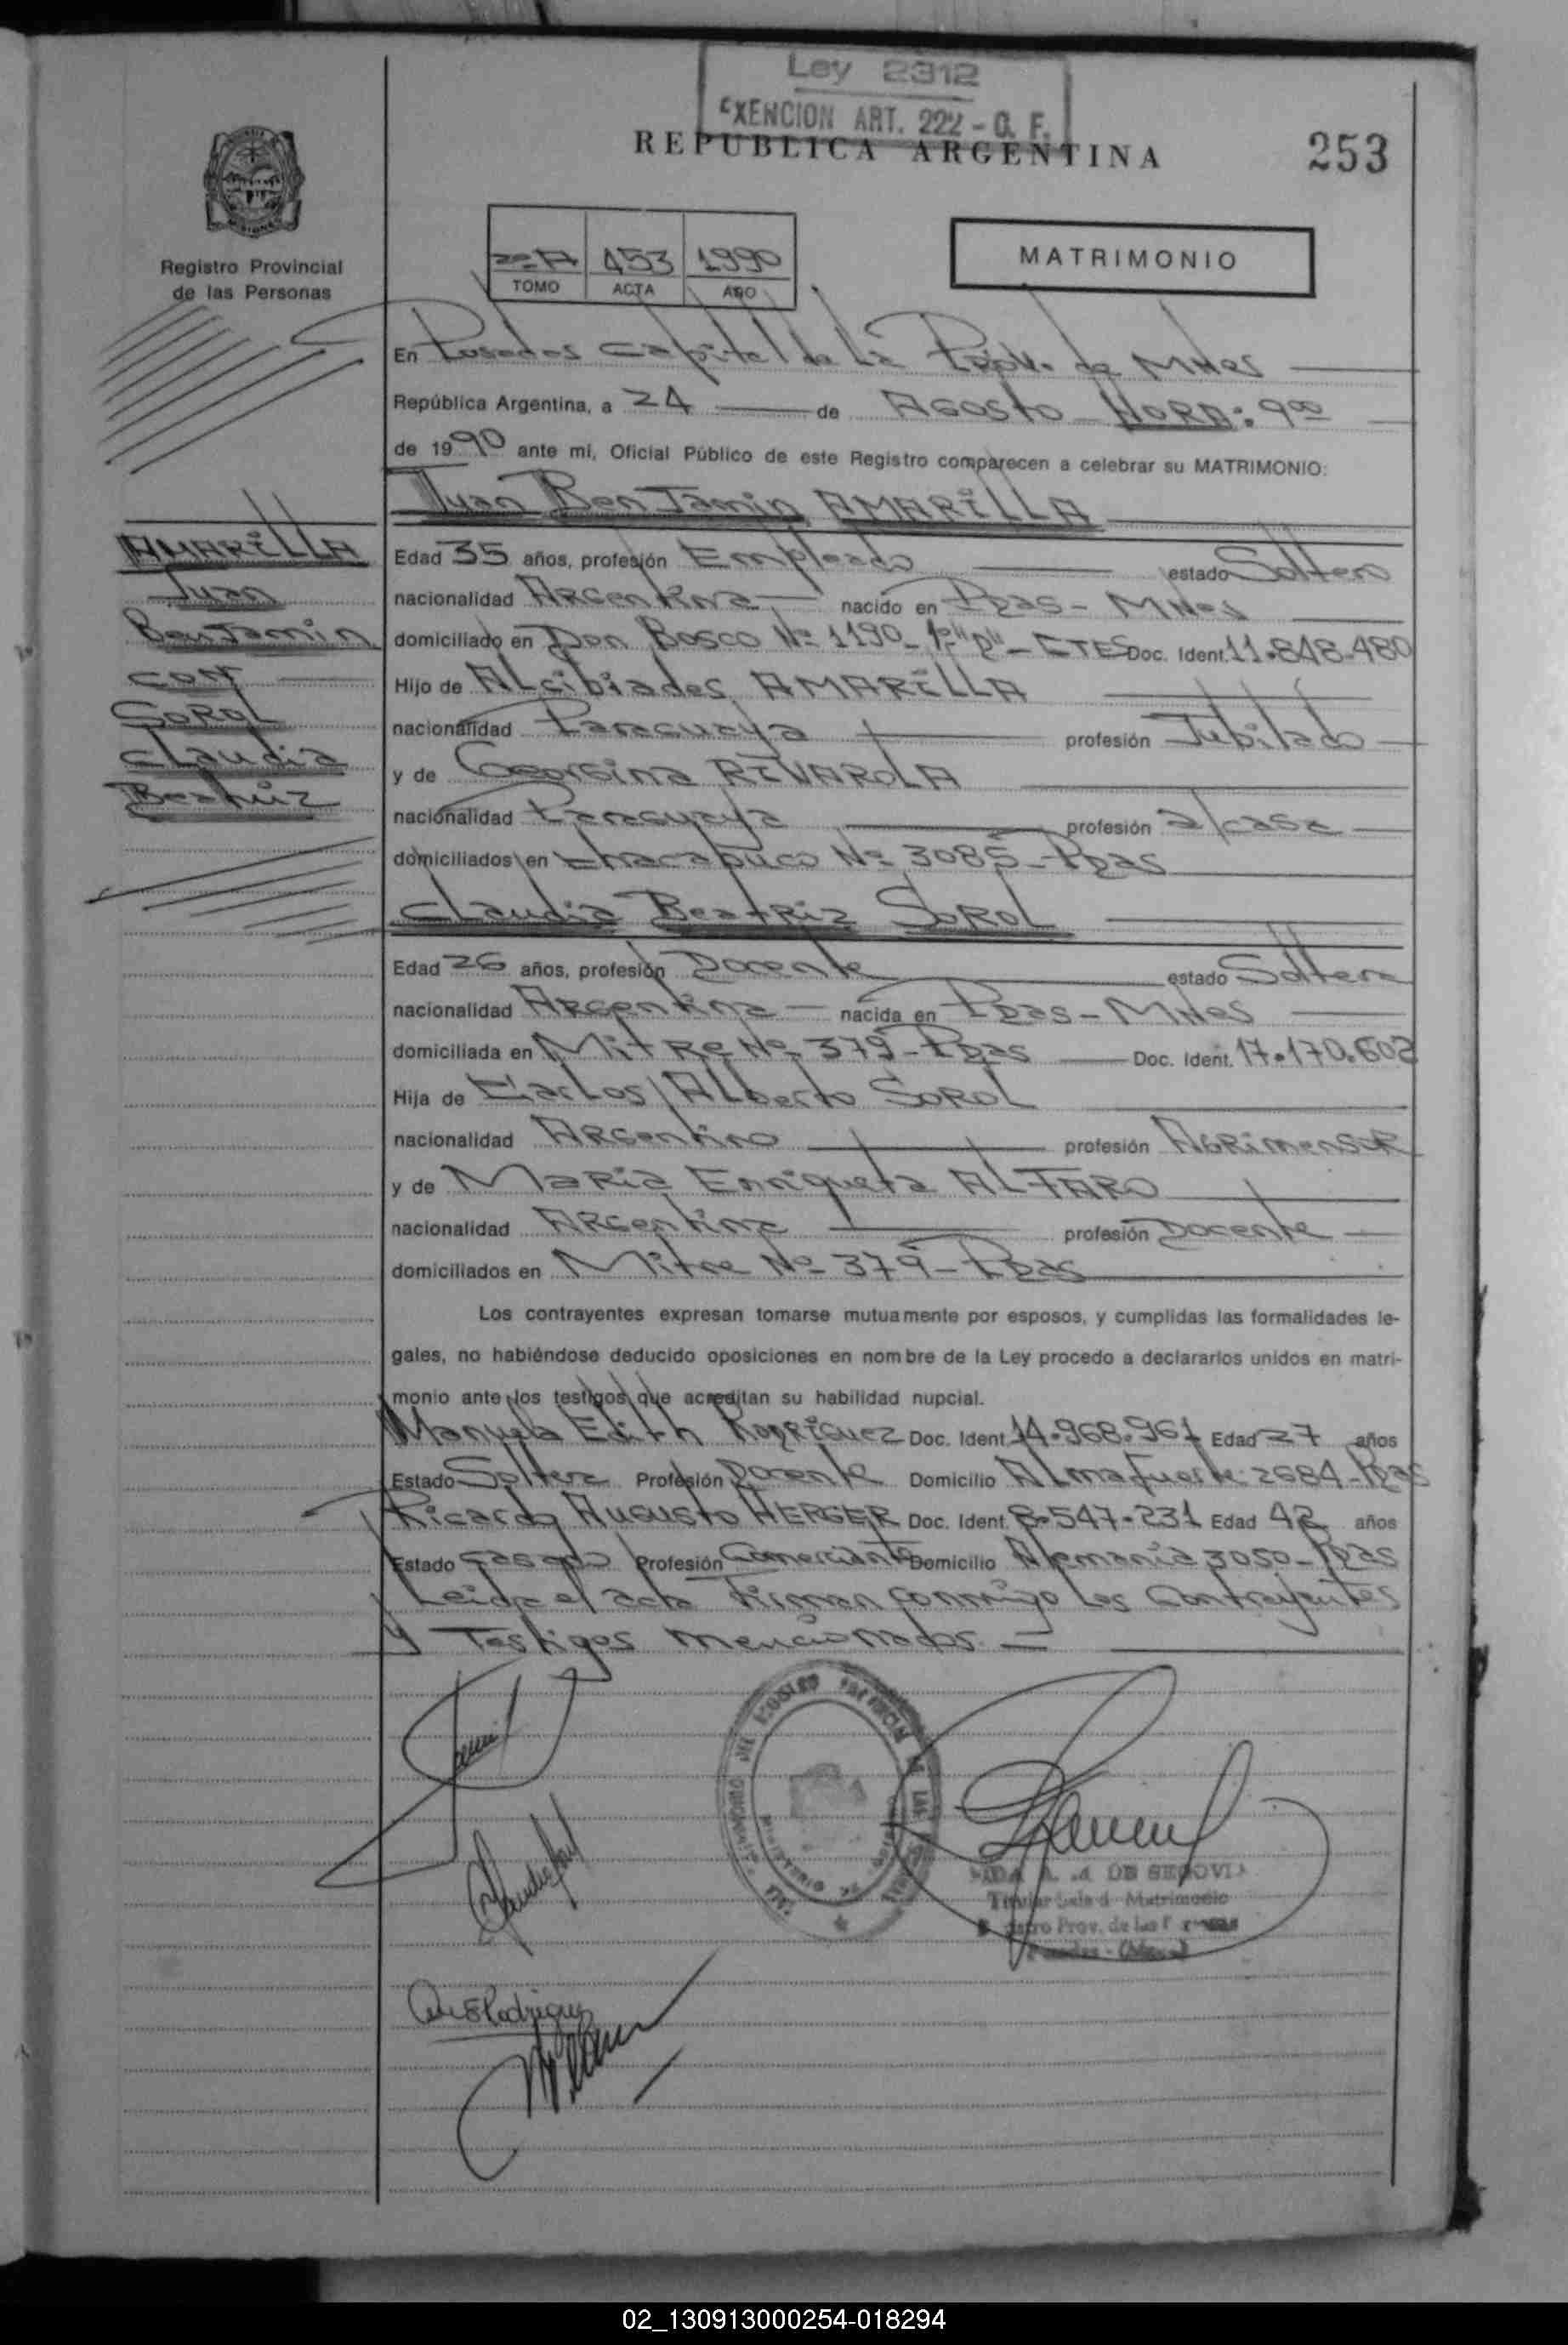 Ley 2312
EXENCION ART. 222 - C. F.
REPUBLICA ARGENTINA
253
Registro Provincial
de las Personas
2º A 453 1990
TOMO ACTA AÑO
MATRIMONIO
En Posadas Capital de La Prov. de Mnes
República Argentina, a 24 de Agosto HORA: 9⁰⁰
de 1990 ante mi, Oficial Público de este Registro comparecen a celebrar su MATRIMONIO:
Juan Benjamin AMARILLA
AMARILLA
Juan
Benjamin
con
SOROL
Claudia
Beatriz
Edad 35 años, profesión Empleado estado Soltero
nacionalidad Argentina nacido en Pdas - Mnes
domiciliado en Don Bosco Nº 1190 - 1º "D" - CTES Doc. Ident. 11.848.480
Hijo de Alcibiades AMARILLA
nacionalidad Paraguaya profesión Jubilado
y de Georgina RIVAROLA
nacionalidad Paraguaya profesión a/casa
domiciliados en Chacabuco Nº 3085 - Pdas
Claudia Beatriz SOROL
Edad 26 años, profesión Docente estado Soltera
nacionalidad Argentina nacida en Pdas - Mnes
domiciliada en Mitre Nº 379 - Pdas Doc. Ident. 17.170.602
Hija de Carlos Alberto SOROL
nacionalidad Argentino profesión Agrimensor
y de Maria Enriqueta ALFARO
nacionalidad Argentina profesión Docente
domiciliados en Mitre Nº 379 - Pdas
Los contrayentes expresan tomarse mutuamente por esposos, y cumplidas las formalidades le-
gales, no habiéndose deducido oposiciones en nombre de la Ley procedo a declararlos unidos en matri-
monio ante los testigos que acreditan su habilidad nupcial.
Manuela Edith Rodriguez Doc. Ident. 14.968.961 Edad 27 años
Estado Soltera Profesión Docente Domicilio Almafuerte 2684 - Pdas
Ricardo Augusto HERGER Doc. Ident. 8.547.231 Edad 42 años
Estado Casado Profesión Comerciante Domicilio Alemania 3050 - Pdas
Leida el acta firman conmigo los Contrayentes
y Testigos mencionados.
DE SEGOVIA
Titular Sala d Matrimonio
Prov. de las
Posadas - (Mnes)
02_130913000254-018294